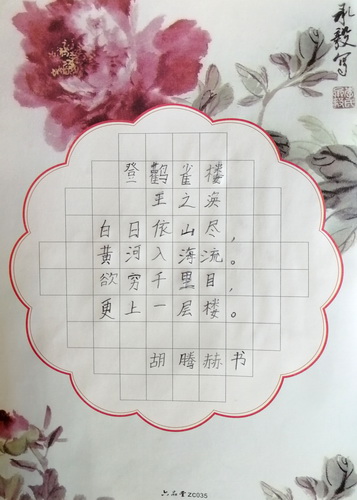 登鹳雀楼
王之涣
白日依山尽，
黄河入海流。
欲穷千里目，
更上一层楼。
胡腾赫书
六品堂 ZC035